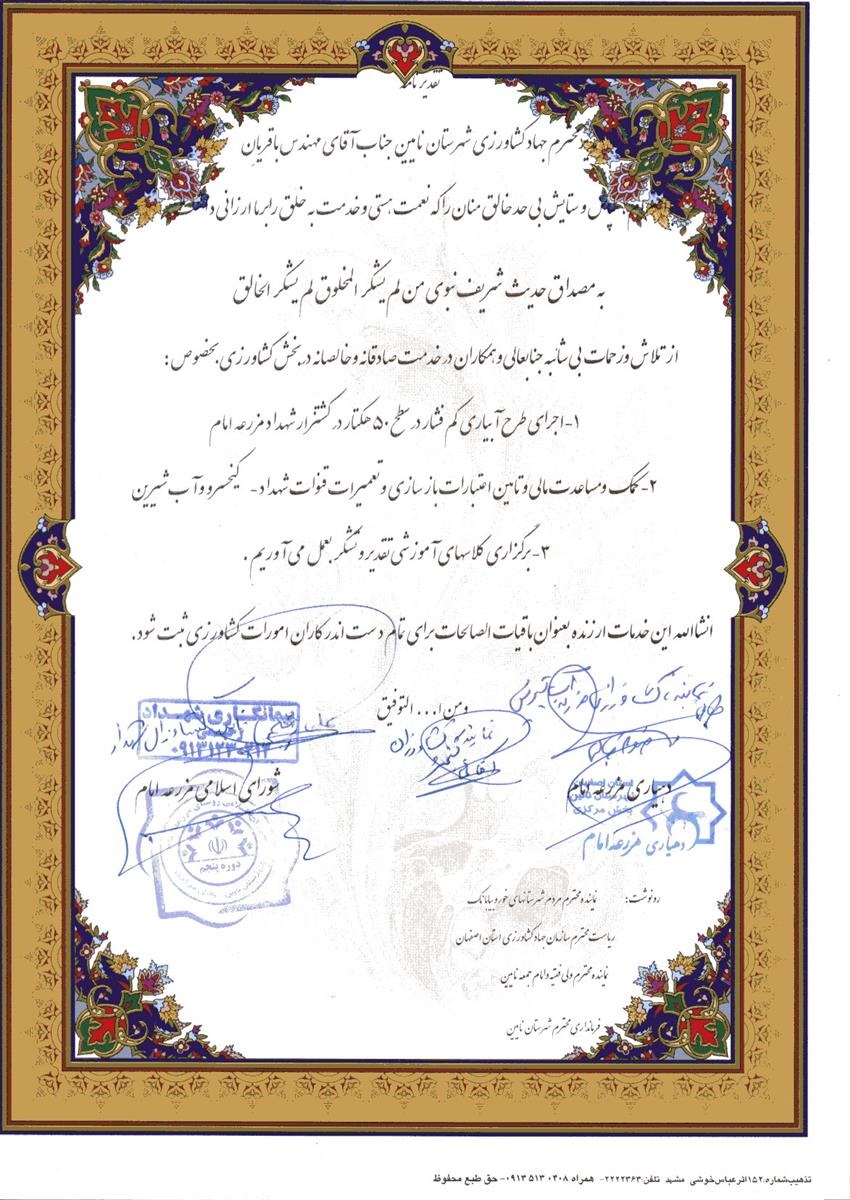 تقدیر نامه
محترم جهاد کشاورزی شهرستان نایین جناب آقای مهندس باقریان
و ستایش بی حد خالق منان را که نعمت هستی و خدمت به خلق را بر ما ارزانی
به مصداق حدیث شریف نبوی من لم یشکر المخلوق لم یشکر الخالق
از تلاش و زحمات بی شائبه جنابعالی و همکاران در خدمت صادقانه و خالصانه در بخش کشاورزی بخصوص :
۱- اجرای طرح آبیاری کم فشار در سطح ۵۰ هکتار در کشتزار شهداد مزرعه امام
۲- کمک و مساعدت مالی و تامین اعتبارات بازسازی و تعمیرات قنوات شهداد - کیخسرو و آب شیرین
۳- برگزاری کلاسهای آموزشی تقدیر و تشکر بعمل می آوریم .
انشاالله این خدمات ارزنده بعنوان باقیات الصالحات برای تمام دست اندرکاران امورات کشاورزی ثبت شود.
و من ا... التوفیق
نماینده کشاورزان
پیمانکاری شهداد
شهداد
دهیاری مزرعه امام
شورای اسلامی مزرعه امام
استان اصفهان
شهرستان نائین
بخش مرکزی
دهیاری مزرعه امام
دوره پنجم
رونوشت: نماینده محترم مردم شرستانهای خور و بیابانک
ریاست محترم سازمان جهاد کشاورزی استان اصفهان
نماینده محترم ولی فقیه و امام جمعه نایین
فرمانداری محترم شهرستان نایین
تذهیب شماره:۱۵۲ اثر عباس خوشی مشهد تلفن:۲۲۲۲۳۶۳- همراه ۰۴۰۸ ۵۱۳ ۰۹۱۳- حق طبع محفوظ